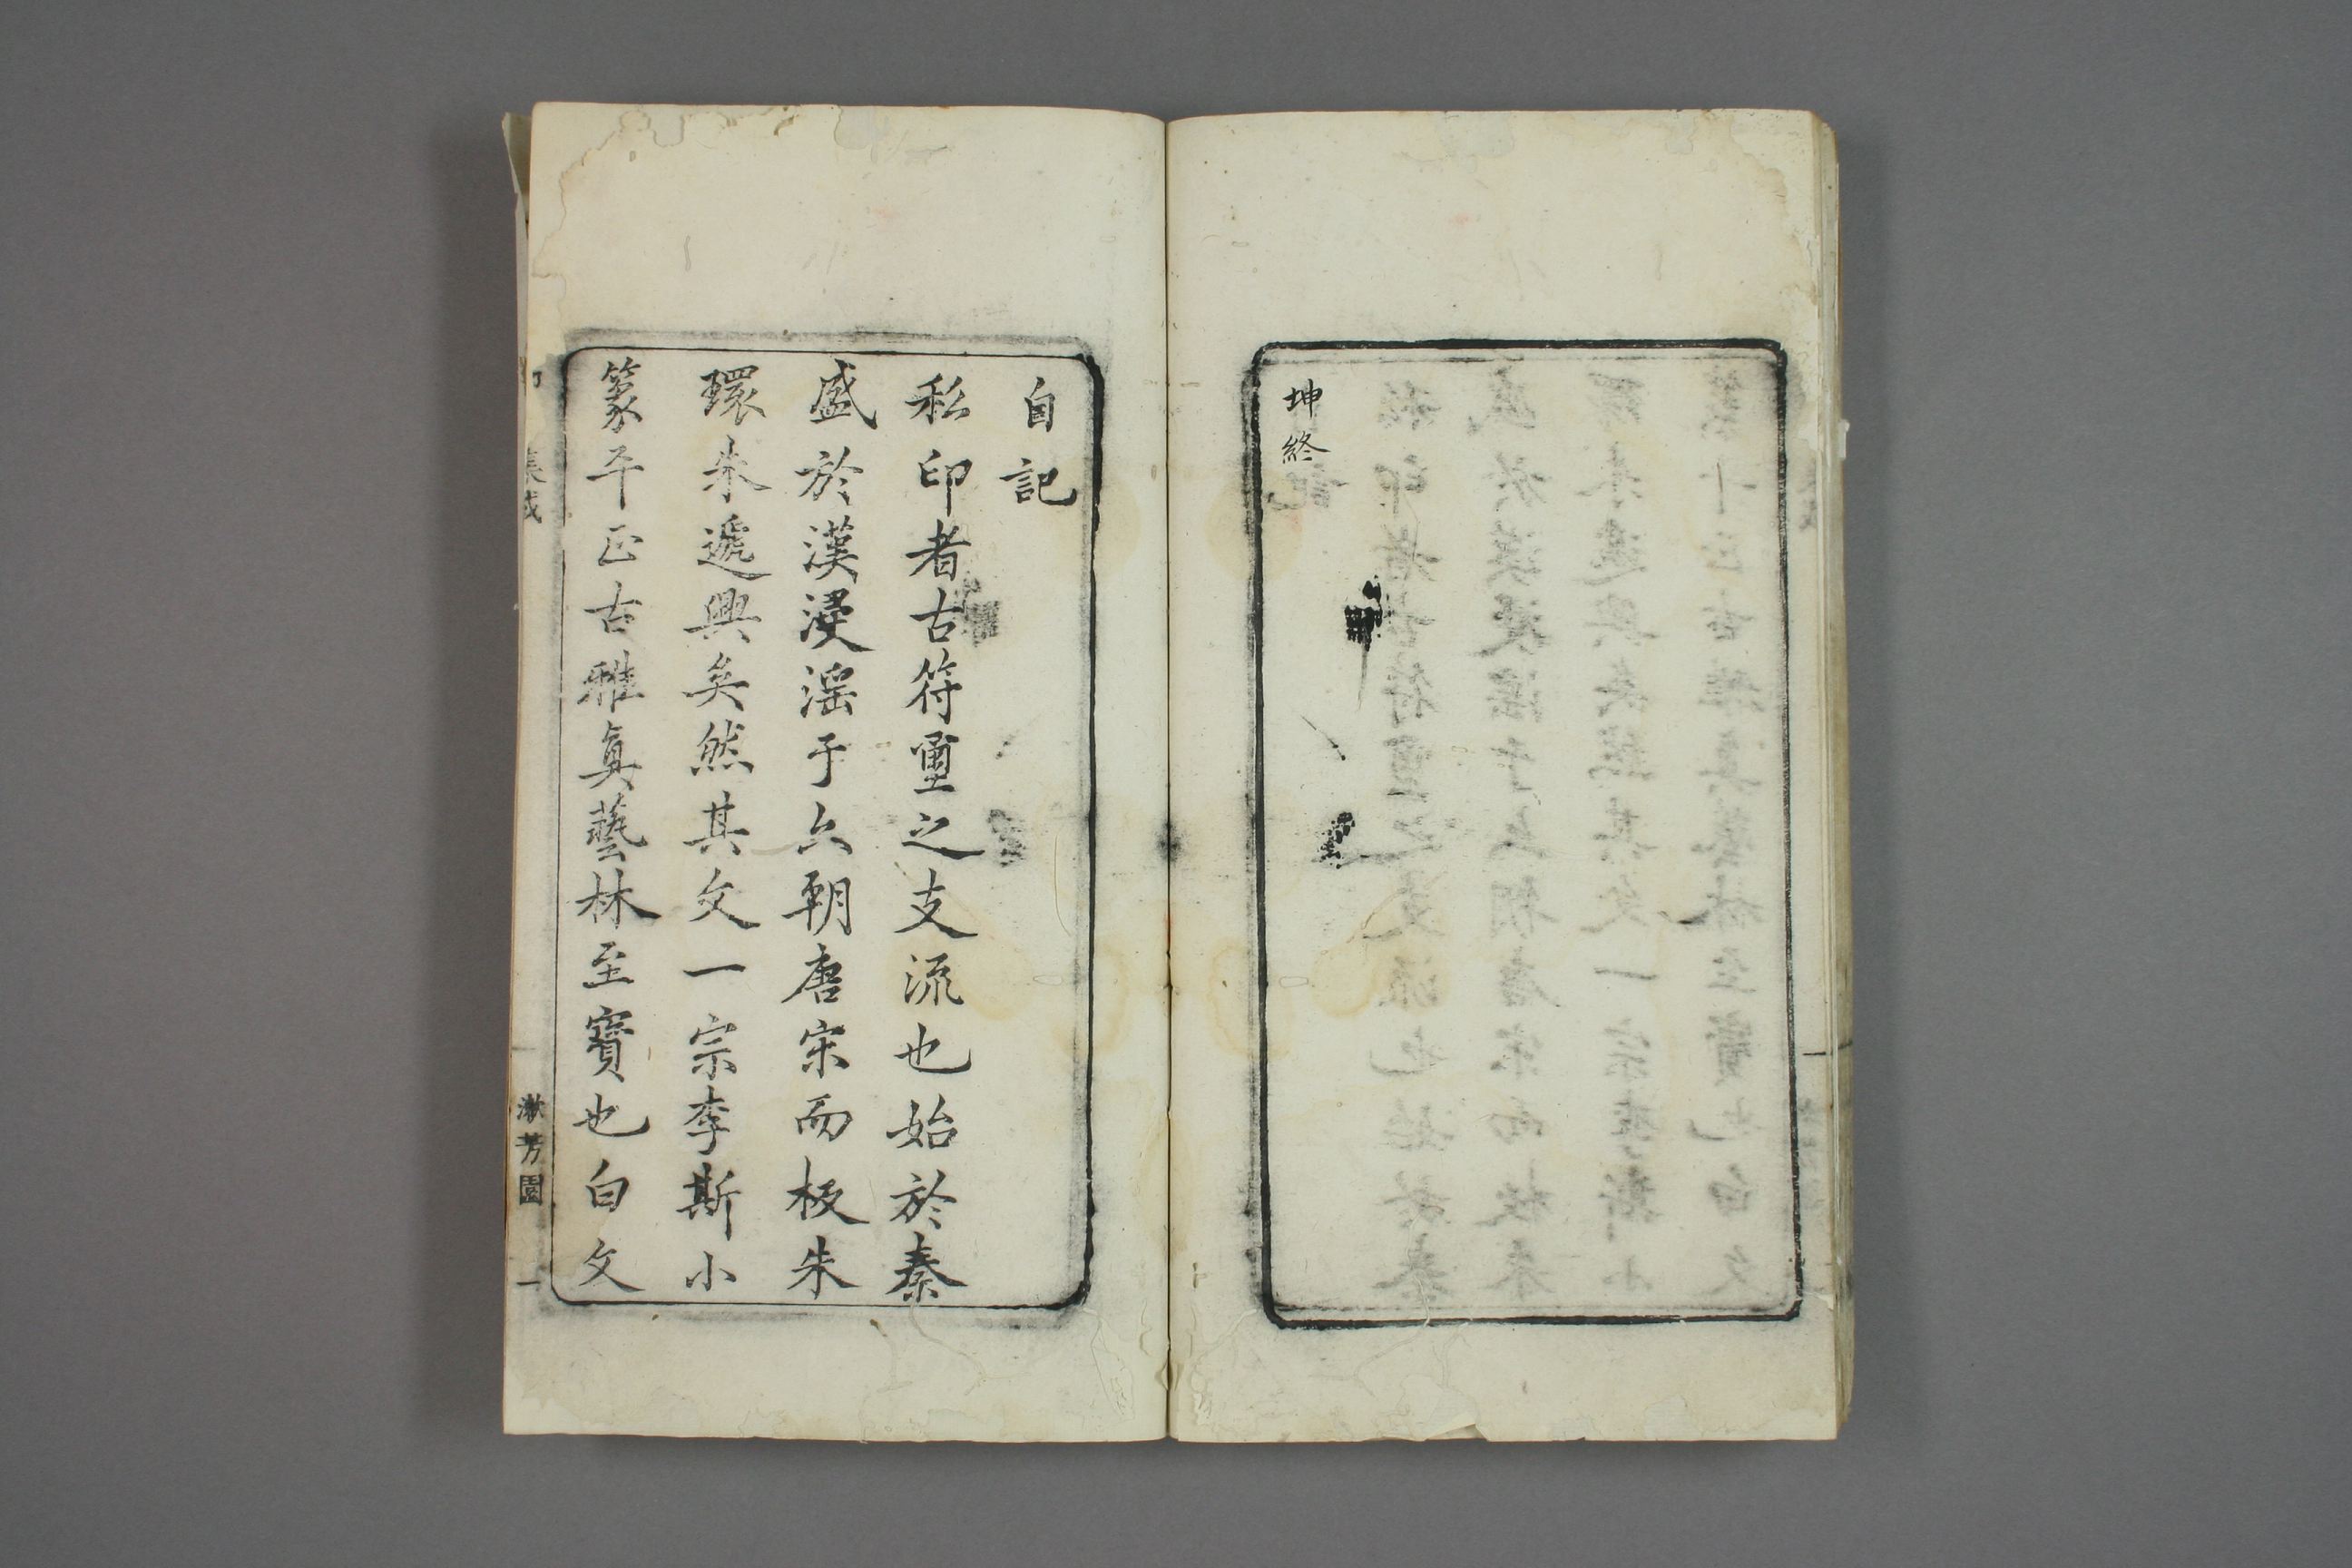 坤終
自記
私印者古符璽之支流也始於秦
盛於漢浸淫于六朝唐宋而極朱
環朱遞興矣然其文一宗李斯小
篆平正古雅眞藝林至寶也白文
集成
漱芳園
一